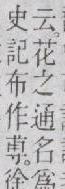 云。花之通名爲
史記布作尃。徐